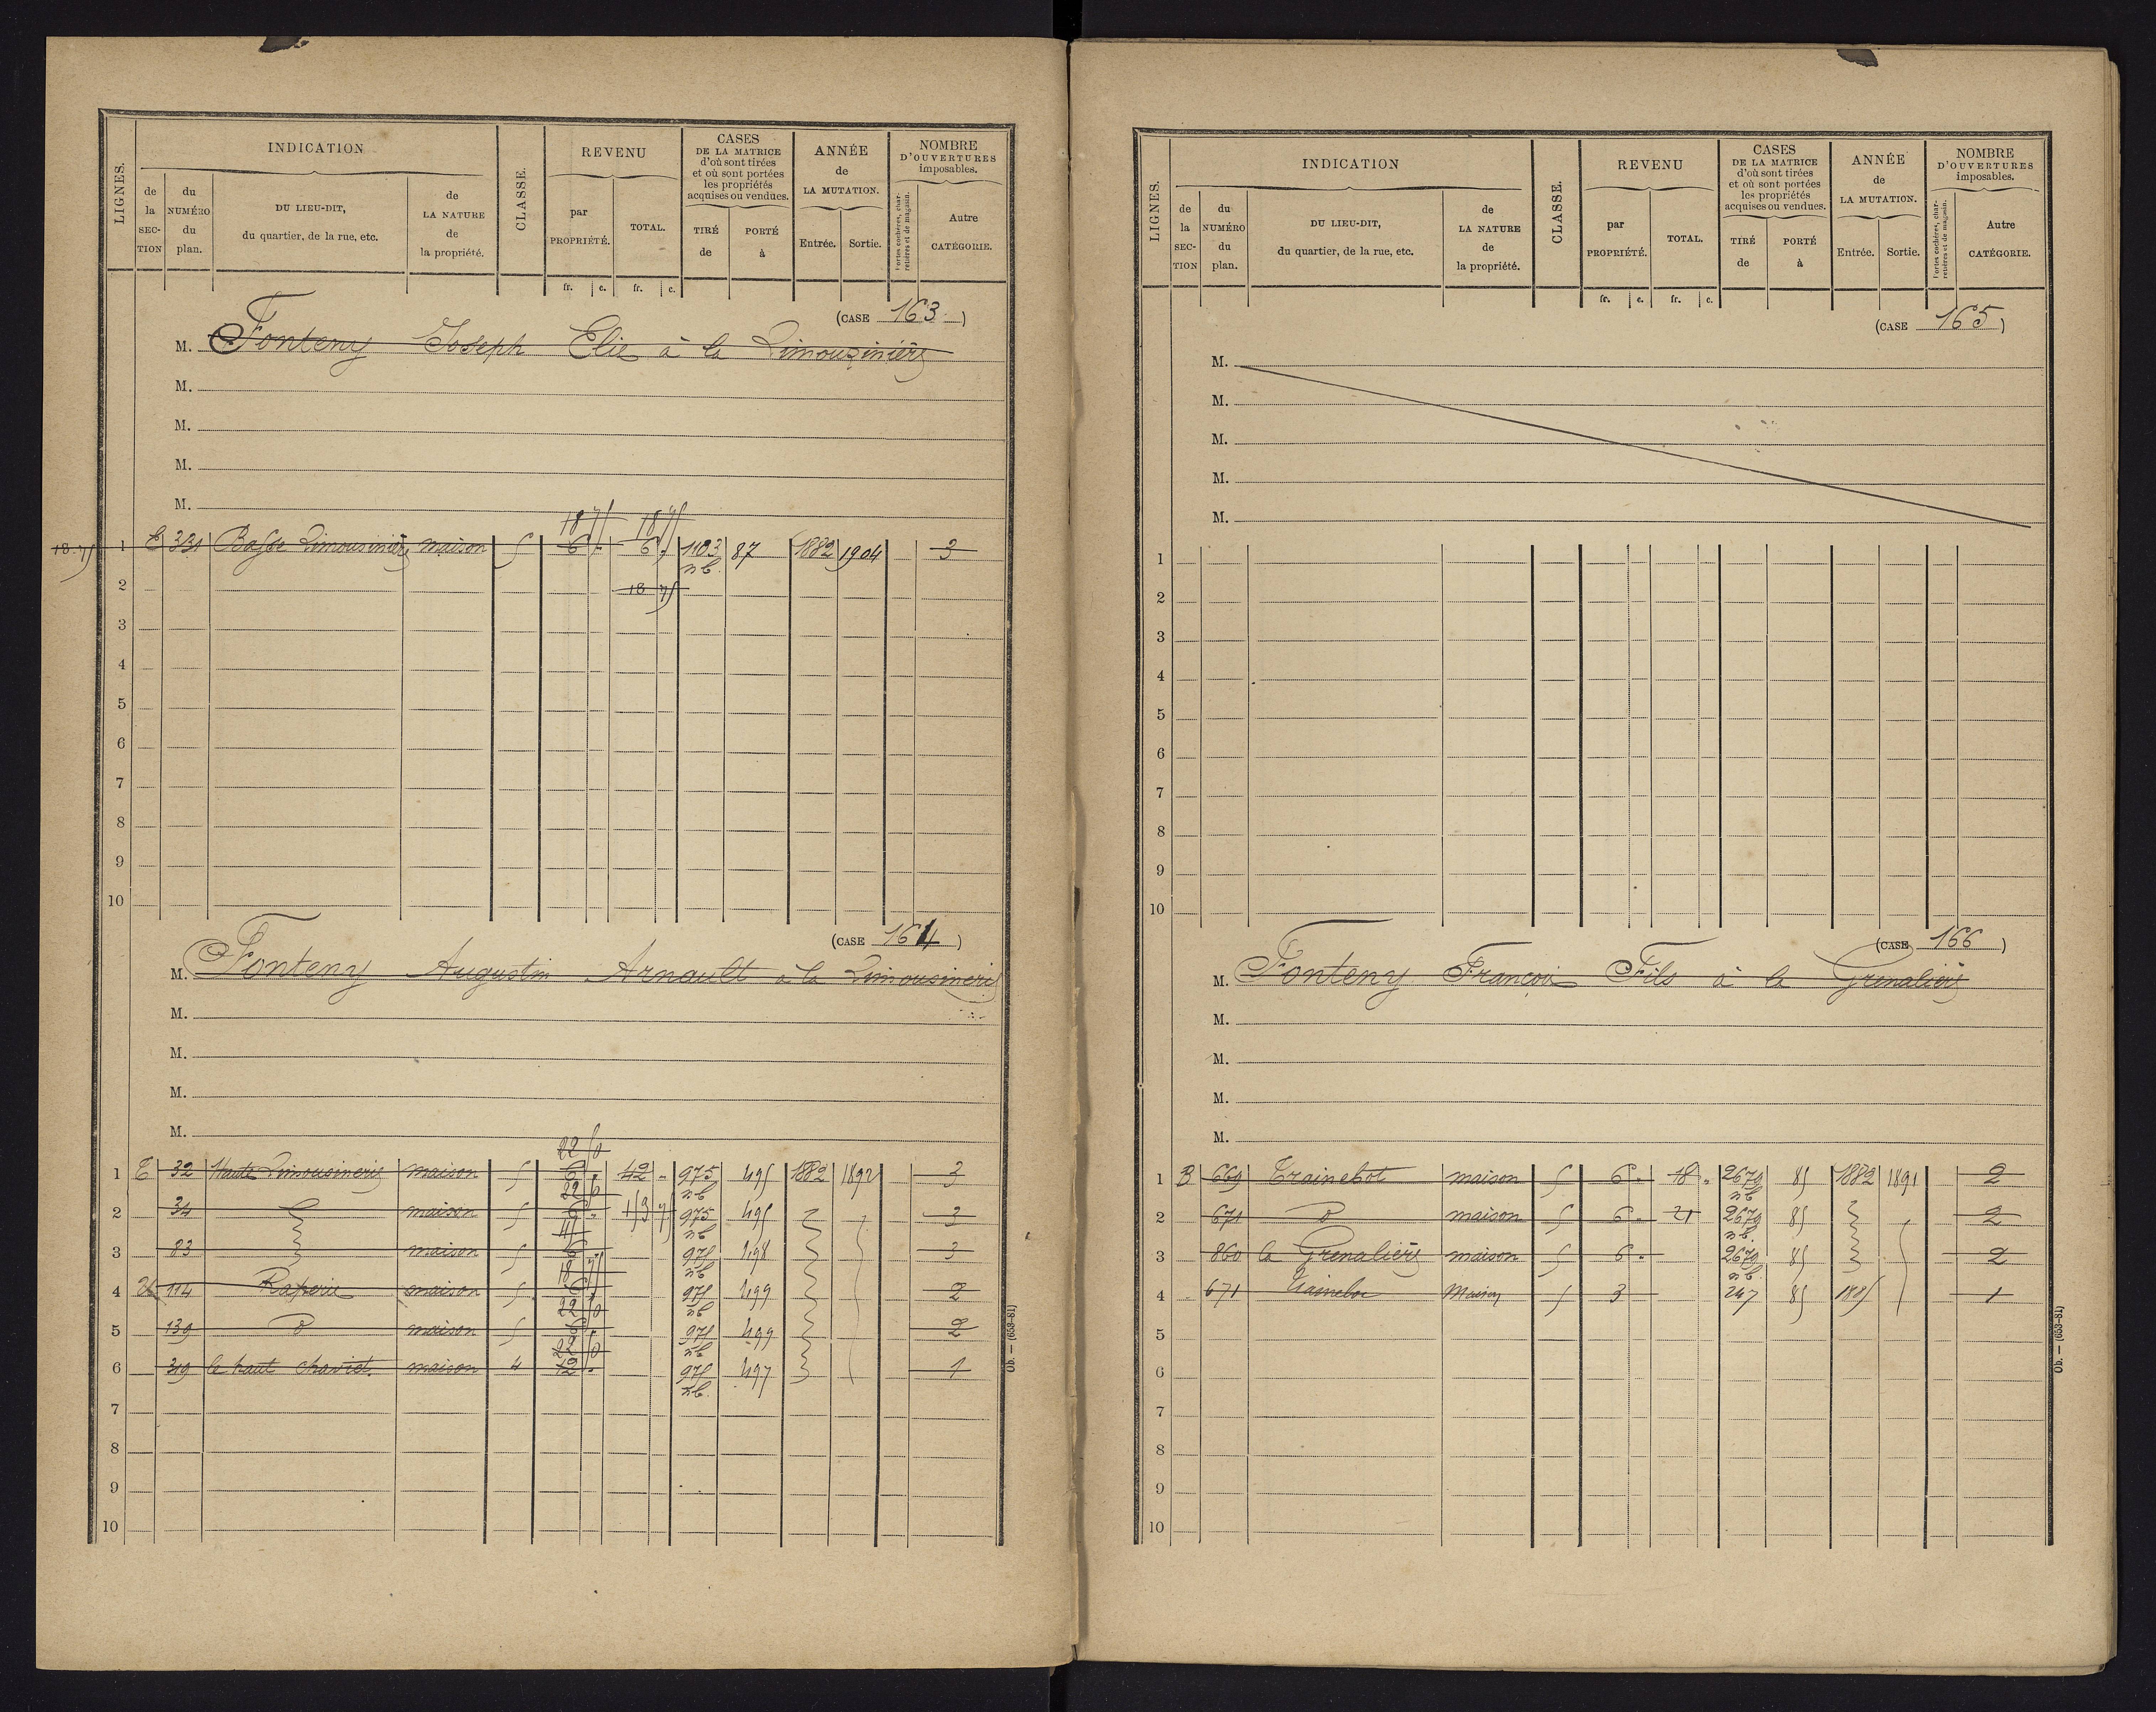 LIGNES.
INDICATION
de la SECTION
du NUMÉRO du plan.
DU LIEU-DIT, du quartier, de la rue, etc.
de LA NATURE de la propriété.
CLASSE.
REVENU
par PROPRIÉTÉ.
TOTAL.
fr. c. fr. c.
CASES DE LA MATRICE d'où sont tirées et où sont portées les propriétés acquises ou vendues.
TIRÉ de
PORTÉ à
ANNÉE de LA MUTATION.
Entrée. Sortie.
NOMBRE D'OUVERTURES imposables.
Portes cochères, charretières et de magasin.
Autre CATÉGORIE.
(CASE 163)
M. Fonteny Joseph Elie à la Limouzinière
M.
M.
M.
M.
18 75 18 75
18.75 1 E 331 Basse Limousinière maison 5 6 " 6 " 1103 87 1882 1904 3
nb.
2 18 75
3
4
5
6
7
8
9
10
(CASE 164)
M. Fonteny Augustin Arnault à la Limousinerie
M.
M.
M.
M.
22 50
1 E 32 Haute Limousinerie maison 5 6 " 42 " 975 495 1882 1892 3
22 50 nb
2 34 maison 5 6 " 975 495 3
nb
3 83 maison 5 6 " 975 498 3
18 75 nb
4 114 Raperie maison 5 6 975 499 2
22 50 nb
5 139 d° maison 5 975 499 2
22 50 nb
6 319 le haut chaviot. maison 4 12 " 975 497 1
nb.
7
8
9
10
Ob. — (653-81)
LIGNES.
INDICATION
de la SECTION
du NUMÉRO du plan.
DU LIEU-DIT, du quartier, de la rue, etc.
de LA NATURE de la propriété.
CLASSE.
REVENU
par PROPRIÉTÉ.
TOTAL.
fr. c. fr. c.
CASES DE LA MATRICE d'où sont tirées et où sont portées les propriétés acquises ou vendues.
TIRÉ de
PORTÉ à
ANNÉE de LA MUTATION.
Entrée. Sortie.
NOMBRE D'OUVERTURES imposables.
Portes cochères, charretières et de magasin.
Autre CATÉGORIE.
(CASE 165)
M.
M.
M.
M.
M.
1
2
3
4
5
6
7
8
9
10
(CASE 166)
M. Fonteny François Fils à la Grenalière
M.
M.
M.
M.
1 B 669 Trainebot maison 5 6 " 18 " 2679 85 1882 1891 2
nb
2 671 d° maison 5 6 " 21 2679 85 2
nb.
3 860 la Grenalière maison 5 6 " 2679 85 2
nb.
4 671 Trainebot Maison 5 3 247 85 1885 1
5
6
7
8
9
10
Ob. — (653-81)